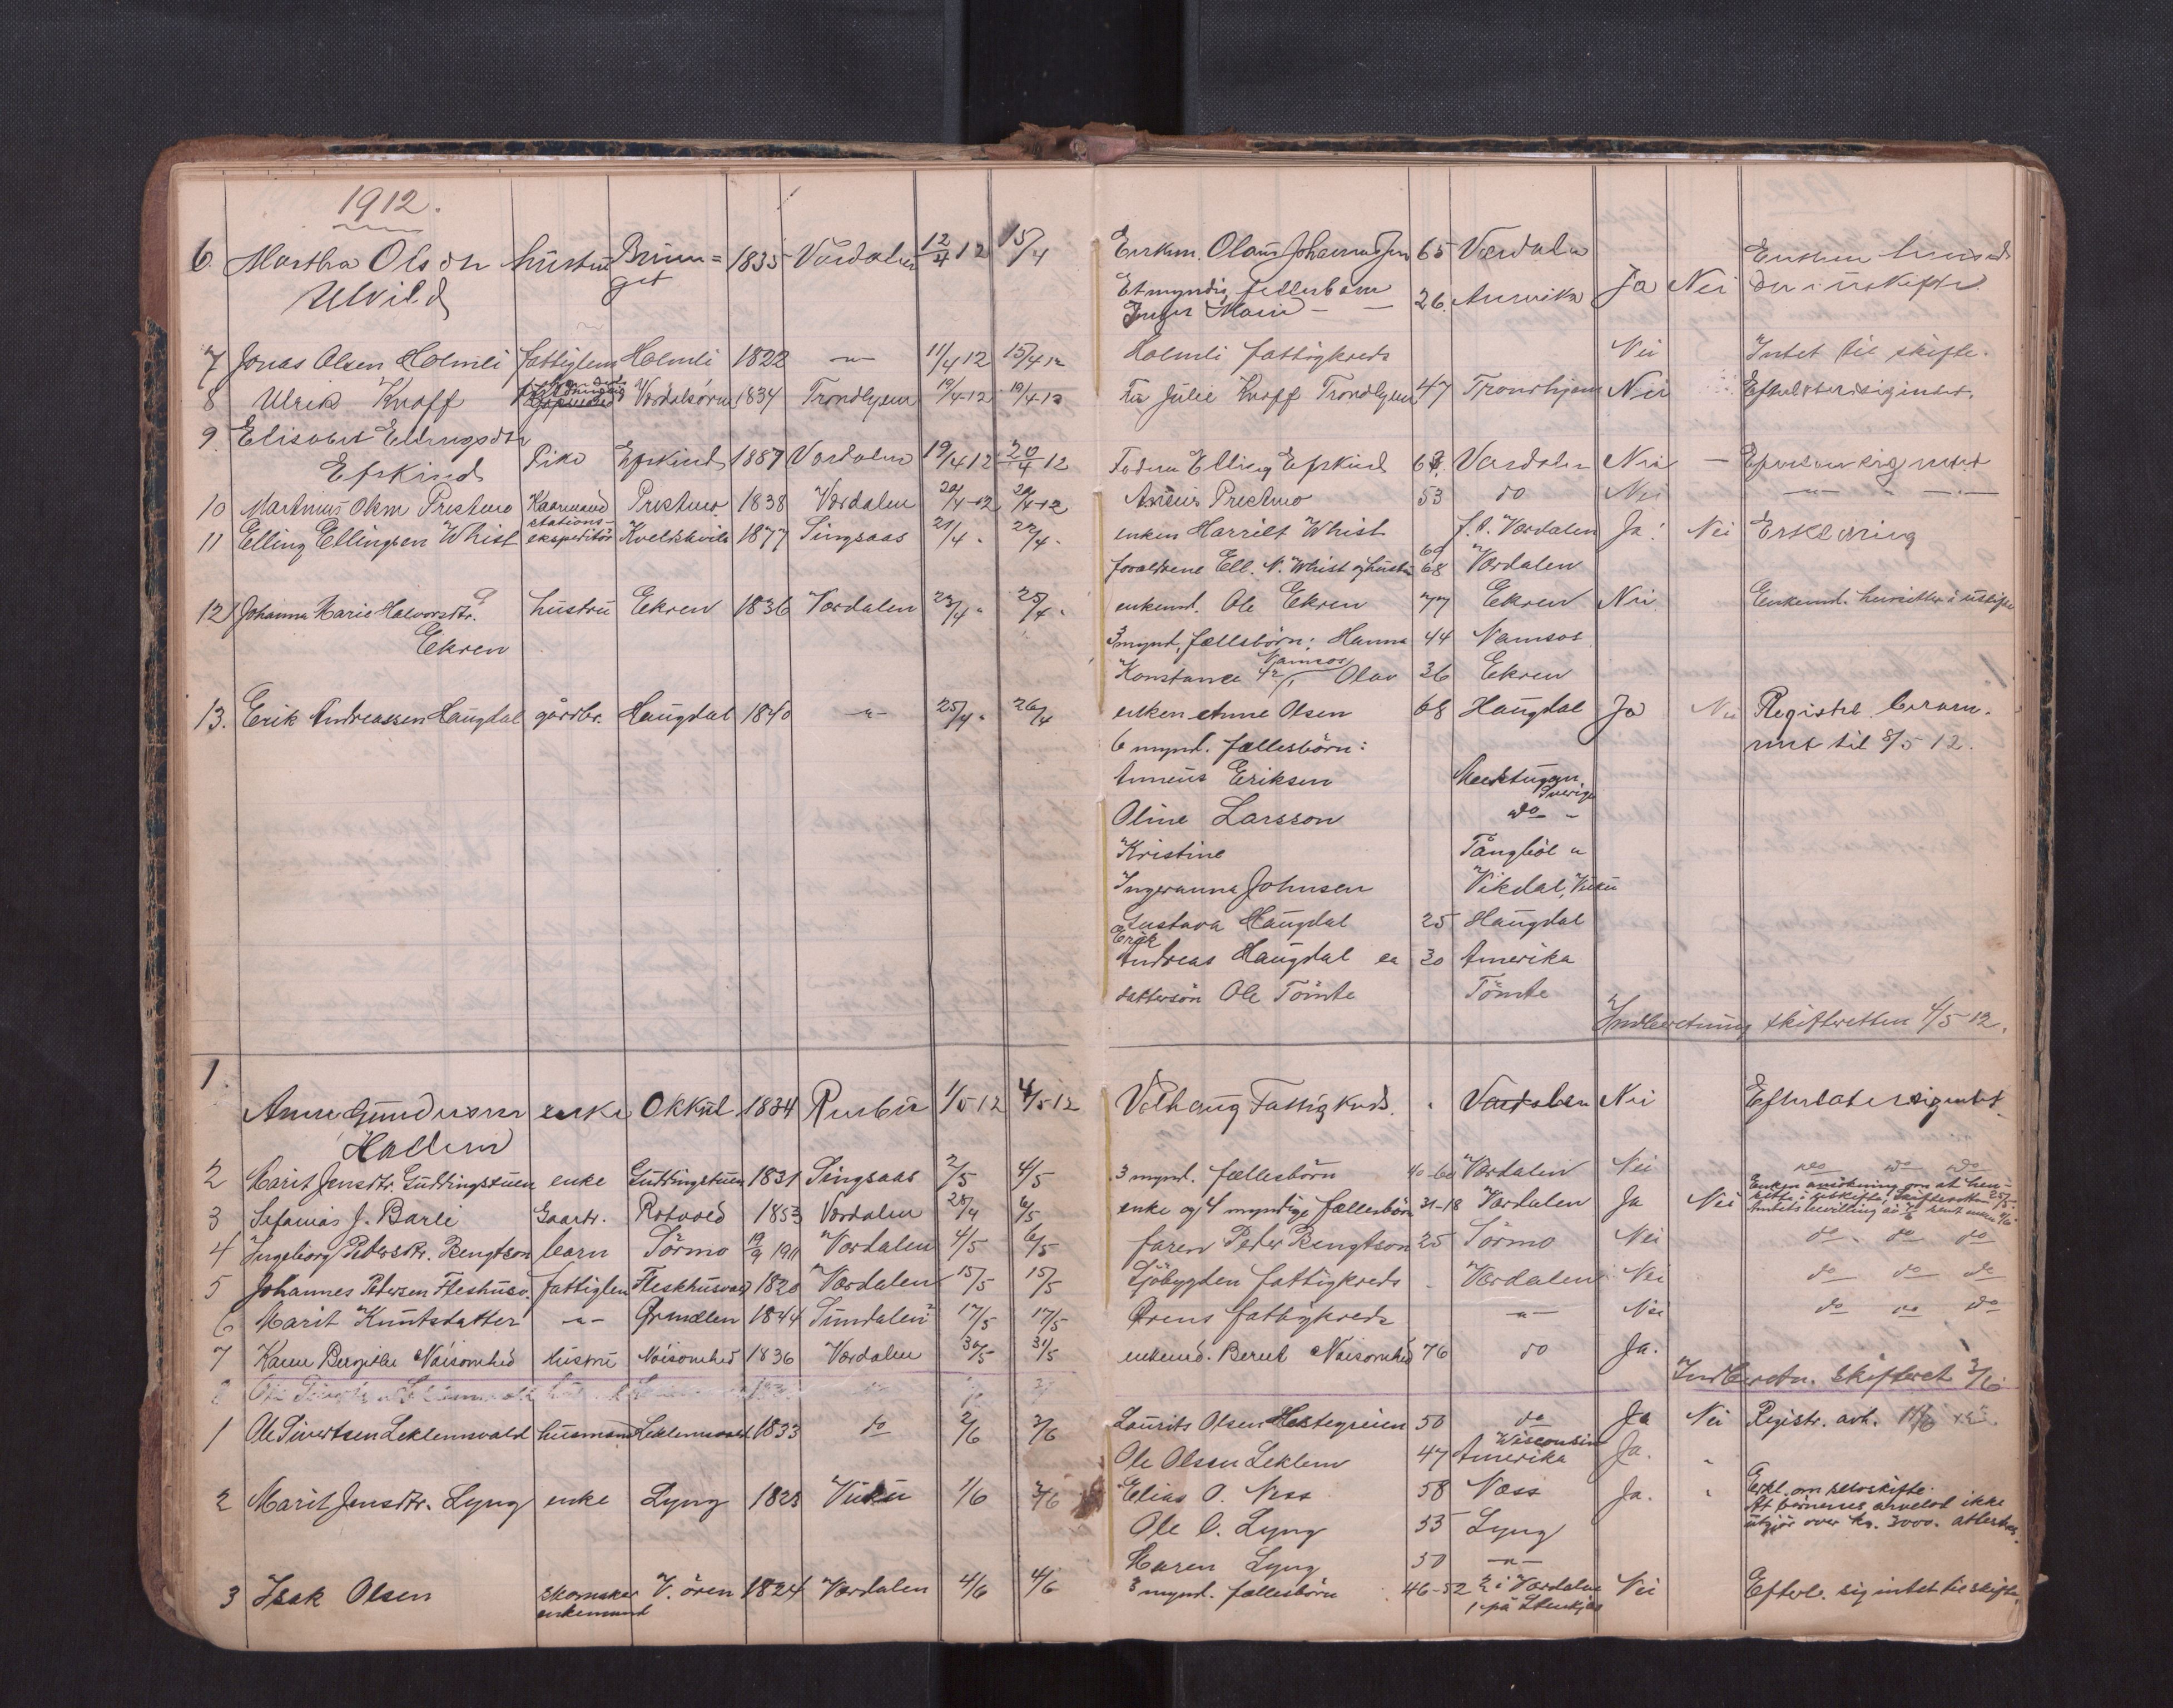 1912.
6. Martha Olsdtr hustru Brun= 1835 Værdalen 12/4 12 15/4 Enkem. Olaus Johannessen 65 Værdalen
Ulvild get Et myndig fællesbarn Ja Nei
Inger Marie 26 Amerika
7 Jonas Olsen Holmli fattiglem Holmli 1822 -"- 11/4 12 15/4 12 Holmli fattigkreds Nei Intet til skifte.
8 Ulrik Knoff Værdalsøren 1834 Trondhjem 19/4-12 19/4-12 Fa Julie Knoff Trondhjem 47 Trondhjem Nei Efterlater sig intet.
9. Elisabet Ellingsdtr
Efskind Pike Efskind 1887 Værdalen 19/4 12 20/4 12 Faderen Elling Efskind Værdalen Nei -
10 Martinus Olsen Prestmo Kaarmand Prestmo 1838 Værdalen 20/4-12 20/4-12 Prestmo 53 do Nei -"- -"-
11 Elling Ellingsen Whist stations- ekspeditör Kvelskvila 1877 Singsaas 21/4 - 22/4 - enken Harriet Whist f.t. Værdalen Ja! Nei Erklæring
forældrene Ell. N. Whist og hustru 69 68 Værdalen
12 Johanna Marie Halvorsdtr. hustru Ekren 1836 Værdalen 23/4 " 25/4 " enkemd. Ole Ekren 77 Ekren Nei Enkemd. hensitter i uskifte
Ekren 3 mynd. fællesbörn: Hanna 44 Namsos
Konstance Namsos 42/1 Olav 36 Ekren
13. Erik Andreassen Haugdal gårdbr. Haugdal 1840 -"- 25/4 " 26/4 enken Anne Olsen 68 Haugdal Ja Nei Registr. beram-
6 mynd. fællesbörn: met til 8/5 12.
Anneus Eriksen Sverige
Oline Larsson do -
Kristine Tångböl "
Ingeranna Johnsen Vikdal, Vuku
Gustava Haugdal 25 Haugdal
Erik
Andreas Haugdal ca 30 Amerika
dattersön Ole Tömte Tömte
Indberetning skifteretten 4/5 12.
1.
Anne Gundersen enke Okkul 1834 Rinbu 1/5 12 4/5 12 Volhaug Fattigkreds. " Værdalen Nei Efterlater sig intet.
Hallem
2 Marit Jensdtr. Guddingstuen enke Guddingstuen 1831 Singsaas 2/5 4/5 3 mynd. fællesbörn 40-60 Værdalen Nei do do do
3 Sefanias J. Barli Gaardbr. Rotvold 1853 Værdalen 28/4 6/5 enke og 4 myndige fællesbörn 31-18 Værdalen Ja Nei Enken ansökning om at hen-
sitte i uskifte, Skifteretten 25/5-
4 Ingeborg Pedersdtr. Bengtson barn Sörmo 19/9 1911 Værdalen 4/5 6/5 faren Peder Bengtson 25 Sörmo Nei do. do do
5 Johannes Petersen Fleshusv. fattiglem Fleskhusvald 1820 Værdalen 15/5 15/5 Sjöbygden fattigkreds - Værdalen Nei do do do
6 Marit Knutsdatter -"- Ørmelen 1844 Sundalen? 17/5 17/5 Ørens fattigkreds -"- Nei do do do
7 Karen Bergitte Nöisomhed hustru Nöisomhed 1836 Værdalen 30/5 31/5 enkemd. Bernt Nöisomhed 76 do Ja.
Indberetn. skifteret 3/6
1 Ole Sivertsen Leklemsvald husmand Leklemsvald 1833 do 2/6 3/6 Laurits Olsen Hestegreien 50 do Ja Nei Registr. avh.
Ole Olsen Leklem 47 Wisconsin Amerika Ja. "
2 Marit Jensdtr. Lyng enke Lyng 1823 Vuku 1/6 3/6 Elias O. Næss 58 Næss Ja. " Erkl. om selvskifte.
At börnenes arvelod ikke
Ole O. Lyng 53 Lyng utgjör over kr. 3000. attesteres.
Maren Lyng 50 -"-
3 Isak Olsen skomaker enkemand V. ören 1824 Værdalen 4/6 4/6 3 mynd. fællesbörn 46-52 2 i Værdalen Nei Efterl. sig intet til skifte.
1 på Stenkjær